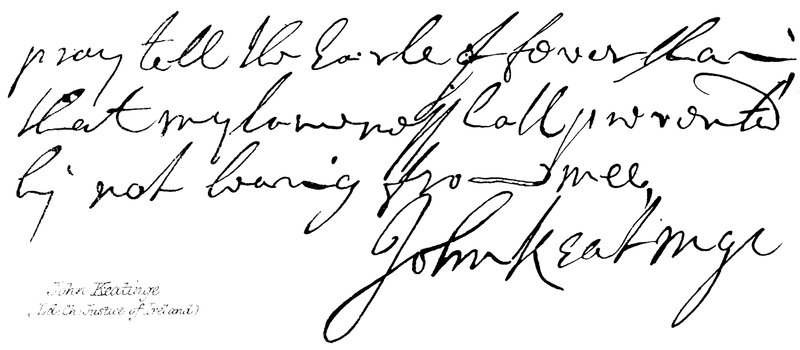 pray tell the Earle of feversham
that my lameness hath prevented
his not hearing from mee,
John Keatinge
John Keatinge
(Ld. Ch. Justice of Ireland)